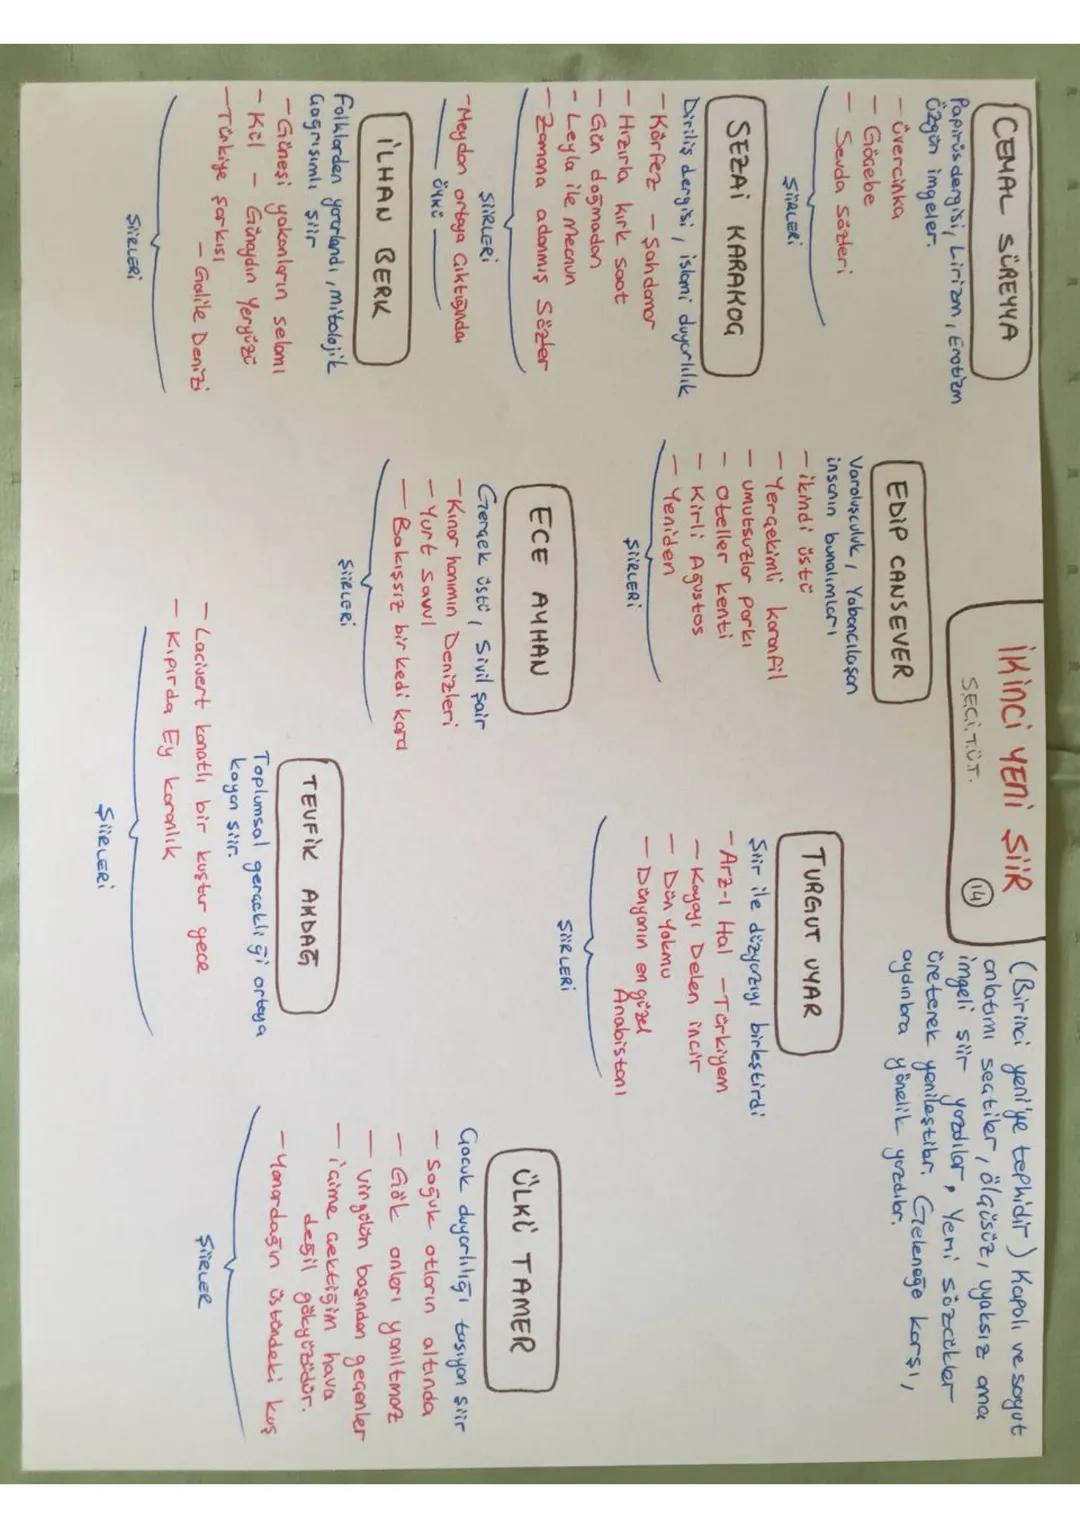 İKİNCİ YENİ ŞİİR
SECİ.T.Ü.T.
14
(Birinci yeni'ye tepkidir) Kapalı ve soyut
anlatımı seçtiler, ölçüsüz, uyaksız ama
imgeli şiir yazdılar, Yeni sözcükler
üreterek yenileştiler. Geleneğe karşı,
aydınlara yönelik yazdılar.
CEMAL SÜREYYA
Papirüs dergisi, Lirizm, Erotizm
Özgün imgeler.
- Üvercinka
- Göçebe
- Sevda Sözleri
ŞİİRLERİ
SEZAİ KARAKOÇ
Diriliş dergisi, islami duyarlılık
- Körfez - Şahdamar
- Hızırla kırk saat
- Gün doğmadan
- Leyla ile Mecnun
- Zamana adanmış Sözler
ŞİİRLERİ
- Meydan ortaya Çıktığında
ÖYKÜ
İLHAN BERK
Folklorden yararlandı, mitolojik
Çağrışımlı şiir
- Güneşi yakanların selamı
- Kül - Günaydın Yeryüzü
- Türkiye şarkısı
- Galile Denizi
ŞİİRLERİ
EDİP CANSEVER
Varoluşculuk, Yabancılaşan
insanın bunalımları
- ikindi üstü
- Yerçekimli karanfil
- umutsuzlar Parkı
- oteller kenti
- Kirli Ağustos
- Yeniden
ŞİİRLERİ
ECE AYHAN
Gerçek üstü, Sivil şair
- Kınar hanımın Denizleri
- Yurt savul
- Bakışsız bir kedi kara
ŞİİRLERİ
TURGUT UYAR
Şiir ile düzyazıyı birleştirdi
- Arz-ı Hal - Türkiyem
- Kayayı Delen incir
- Dün Yokmu
- Dünyanın en güzel
Arabistanı
ŞİİRLERİ
TEVFİK AKDAĞ
Toplumsal gerçekliği ortaya
koyan şiir.
- Lacivert kanatlı bir kuştur gece
- Kıpırda Ey karanlık
ŞİİRLERİ
ÜLKÜ TAMER
Çocuk duyarlılığı taşıyan şiir
- Soğuk otların altında
- Gök onları yanıltmaz
- Virgülün başından geçenler
- içime çektiğim hava
değil gökyüzüdür.
- Yanardağın üstündeki kuş
ŞİİRLER